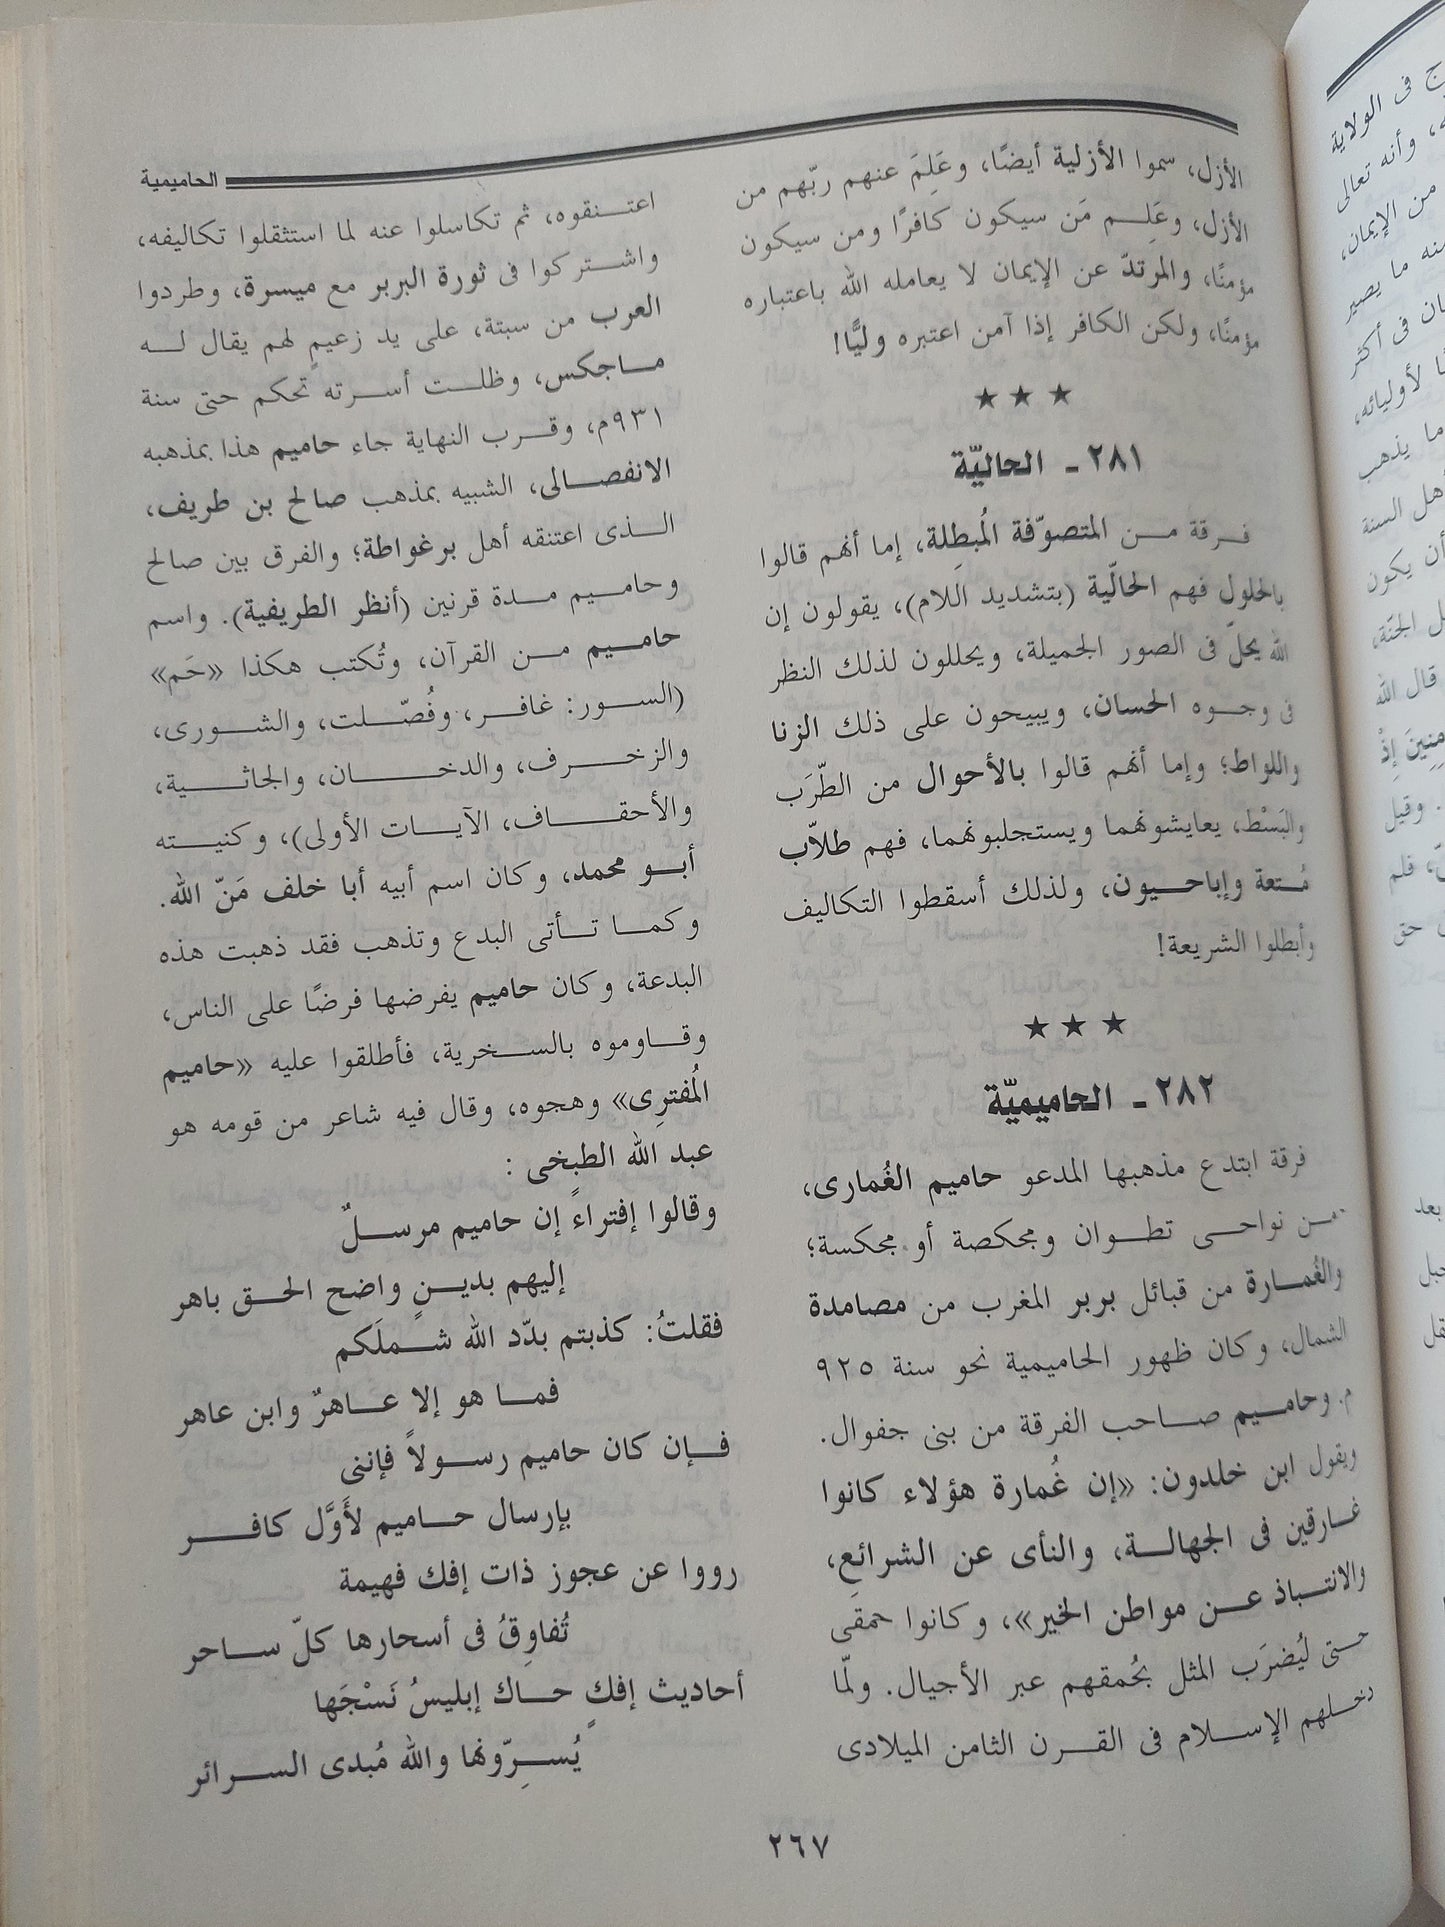 الحاميمية
الأزل، سموا الأزلية أيضًا، وعَلِمَ عنهم ربّهم من
الأزل، وعَلِـم مَن سيكون كافرًا ومن سيكون
مؤمنًا، والمرتدّ عن الإيمان لا يعامله الله باعتباره
مؤمنًا، ولكن الكافر إذا آمن اعتبره وليًّا!
★ ★ ★
٢٨١ ـ الحاليّة
فرقة من المتصوّفة المُبطِلة، إما أنهم قالوا
بالحلول فهم الحالّية (بتشديد اللام)، يقولون إن
الله يحلّ فى الصور الجميلة، ويحللون لذلك النظر
فى وجوه الحسان، ويبيحون على ذلك الزنا
واللواط؛ وإما أنهم قالوا بالأحوال من الطّرَب
والبَسْط، يعايشونهما ويستجلبونهما، فهم طلاّب
مُتعة وإباحيون، ولذلك أسقطوا التكاليف
وأبطلوا الشريعة!
★ ★ ★
٢٨٢ ـ الحاميميّة
فرقة ابتدع مذهبها المدعو حاميم الغُمارى،
من نواحى تطوان ومجكصة أو مجكسة؛
والغُمارة من قبائل بربر المغرب من مصامدة
الشمال، وكان ظهور الحاميمية نحو سنة ٩٢٥
م. وحاميم صاحب الفرقة من بنى جفوال.
ويقول ابن خلدون: «إن غُمارة هؤلاء كانوا
غارقين فى الجهالة، والنأى عن الشرائع،
والانتباذ عن مواطن الخير»، وكانوا حمقى
حتى ليُضرَب المثل بحُمقهم عبر الأجيال. ولمّا
دخلهم الإسلام فى القرن الثامن الميلادى
اعتنقوه، ثم تكاسلوا عنه لما استثقلوا تكاليفه،
واشتركوا فى ثورة البربر مع ميسرة، وطردوا
العرب من سبتة، على يد زعيمٍ لهم يقال له
ماجكس، وظلت أسرته تحكم حتى سنة
٩٣١م، وقرب النهاية جاء حاميم هذا بمذهبه
الانفصالى، الشبيه بمذهب صالح بن طريف،
الذى اعتنقه أهل برغواطة؛ والفرق بين صالح
وحاميم مدة قرنين (أنظر الطريفية). واسم
حاميم من القرآن، وتُكتب هكذا «حَم»
(السور: غافر، وفُصّلت، والشورى،
والزخرف، والدخان، والجاثية،
والأحقاف، الآيات الأولى)، وكنيته
أبو محمد، وكان اسم أبيه أبا خلف مَنّ الله.
وكما تأتى البدع وتذهب فقد ذهبت هذه
البدعة، وكان حاميم يفرضها فرضًا على الناس،
وقاوموه بالسخرية، فأطلقوا عليه «حاميم
المُفترِى» وهجوه، وقال فيه شاعر من قومه هو
عبد الله الطبخى :
وقالوا إفتراءً إن حاميم مرسلٌ
إليهم بدينٍ واضح الحق باهر
فقلتُ: كذبتم بدّد الله شملَكم
فما هو إلا عاهرٌ وابن عاهر
فإن كان حاميم رسولاً فإننى
بإرسال حاميم لأَوَّل كافر
رووا عن عجوز ذات إفك فهيمة
تُفاوِقُ فى أسحارها كلّ ساحر
أحاديث إفكٍ حاك إبليسُ نَسْجَها
يُسِرّونها والله مُبدى السرائر
٢٦٧
ج فى الولاية
وأنه تعالى
من الإيمان،
منه ما يصير
فى أكثر
لأوليائه،
ما يذهب
السنة
أن يكون
الجنّة،
قال الله
إذْ
وقيل
فلم
حق
بعد